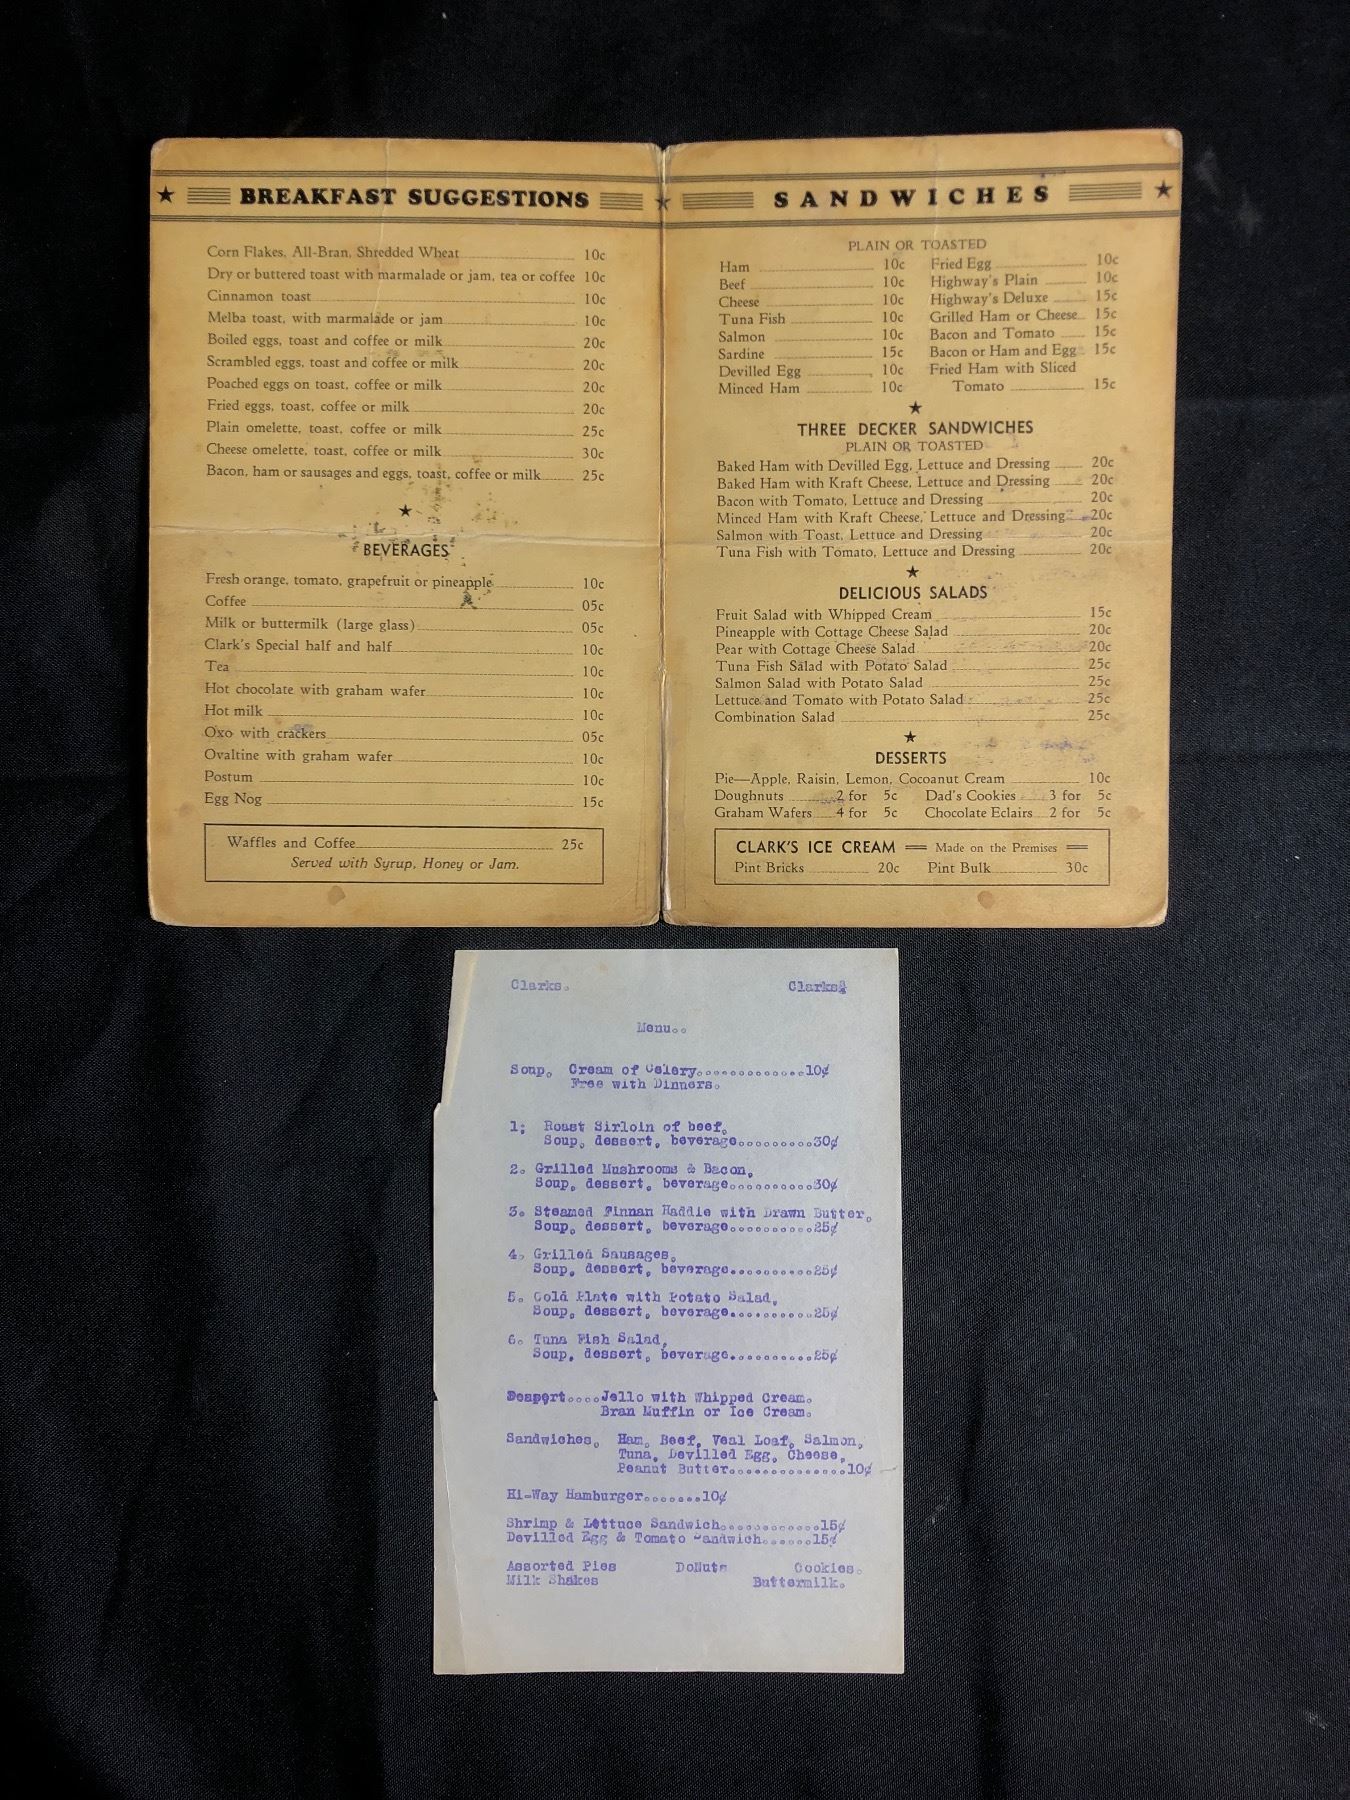 ★ BREAKFAST SUGGESTIONS ★
Corn Flakes, All-Bran, Shredded Wheat 10c
Dry or buttered toast with marmalade or jam, tea or coffee 10c
Cinnamon toast 10c
Melba toast, with marmalade or jam 10c
Boiled eggs, toast and coffee or milk 20c
Scrambled eggs, toast and coffee or milk 20c
Poached eggs on toast, coffee or milk 20c
Fried eggs, toast, coffee or milk 20c
Plain omelette, toast, coffee or milk 25c
Cheese omelette, toast, coffee or milk 30c
Bacon, ham or sausages and eggs, toast, coffee or milk 25c
★
BEVERAGES
Fresh orange, tomato, grapefruit or pineapple 10c
Coffee 05c
Milk or buttermilk (large glass) 05c
Clark's Special half and half 10c
Tea 10c
Hot chocolate with graham wafer 10c
Hot milk 10c
Oxo with crackers 05c
Ovaltine with graham wafer 10c
Postum 10c
Egg Nog 15c
Waffles and Coffee 25c
Served with Syrup, Honey or Jam.
SANDWICHES ★
PLAIN OR TOASTED
Ham 10c
Beef 10c
Cheese 10c
Tuna Fish 10c
Salmon 10c
Sardine 15c
Devilled Egg 10c
Minced Ham 10c
Fried Egg 10c
Highway's Plain 10c
Highway's Deluxe 15c
Grilled Ham or Cheese 15c
Bacon and Tomato 15c
Bacon or Ham and Egg 15c
Fried Ham with Sliced
Tomato 15c
★
THREE DECKER SANDWICHES
PLAIN OR TOASTED
Baked Ham with Devilled Egg, Lettuce and Dressing 20c
Baked Ham with Kraft Cheese, Lettuce and Dressing 20c
Bacon with Tomato, Lettuce and Dressing 20c
Minced Ham with Kraft Cheese, Lettuce and Dressing 20c
Salmon with Toast, Lettuce and Dressing 20c
Tuna Fish with Tomato, Lettuce and Dressing 20c
★
DELICIOUS SALADS
Fruit Salad with Whipped Cream 15c
Pineapple with Cottage Cheese Salad 20c
Pear with Cottage Cheese Salad 20c
Tuna Fish Salad with Potato Salad 25c
Salmon Salad with Potato Salad 25c
Lettuce and Tomato with Potato Salad 25c
Combination Salad 25c
★
DESSERTS
Pie—Apple, Raisin, Lemon, Cocoanut Cream 10c
Doughnuts 2 for 5c Dad's Cookies 3 for 5c
Graham Wafers 4 for 5c Chocolate Eclairs 2 for 5c
CLARK'S ICE CREAM Made on the Premises
Pint Bricks 20c Pint Bulk 30c
Clarks. Clarks
Menu..
Soup. Cream of Celery.............10¢
Free with Dinners.
1; Roast Sirloin of beef,
Soup, dessert, beverage.........30¢
2. Grilled Mushrooms & Bacon,
Soup, dessert, beverage..........30¢
3. Steamed Finnan Haddie with Drawn Butter,
Soup, dessert, beverage..........25¢
4. Grilled Sausages,
Soup, dessert, beverage..........25¢
5. Cold Plate with Potato Salad,
Soup, dessert, beverage..........25¢
6. Tuna Fish Salad,
Soup, dessert, beverage..........25¢
Dessert....Jello with Whipped Cream.
Bran Muffin or Ice Cream.
Sandwiches, Ham, Beef, Veal Loaf, Salmon,
Tuna, Devilled Egg, Cheese,
Peanut Butter..............10¢
Hi-Way Hamburger.......10¢
Shrimp & Lettuce Sandwich............15¢
Devilled Egg & Tomato Sandwich......15¢
Assorted Pies DoNuts Cookies.
Milk Shakes Buttermilk.